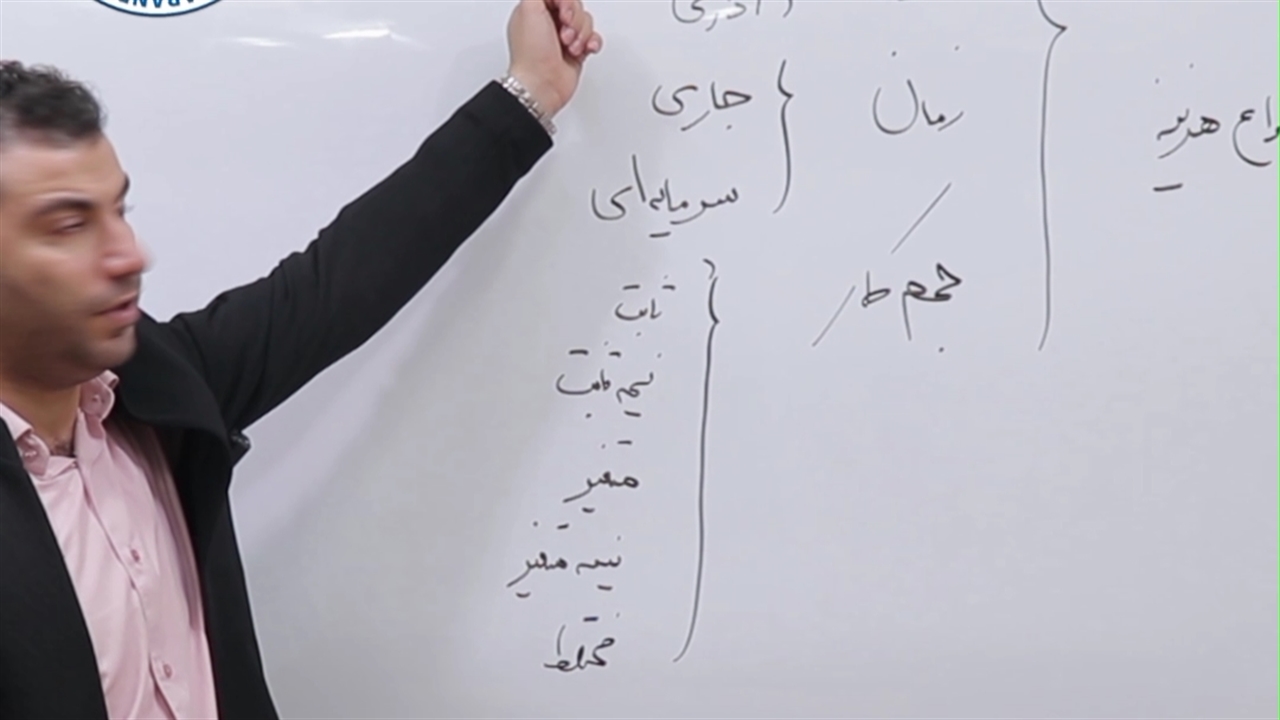 هزینه
زمان
جاری
سرمایه‌ای
حجم کار
ثابت
نیمه ثابت
متغیر
نیمه متغیر
مختلط